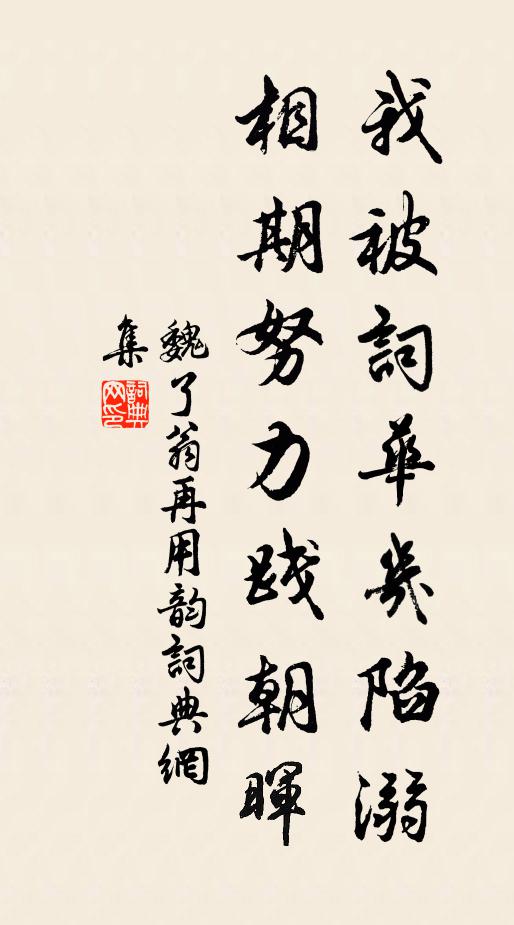 我被詞華幾陷溺
相期努力踐朝暉
魏了翁再用韵詞典網
集
詞典網印